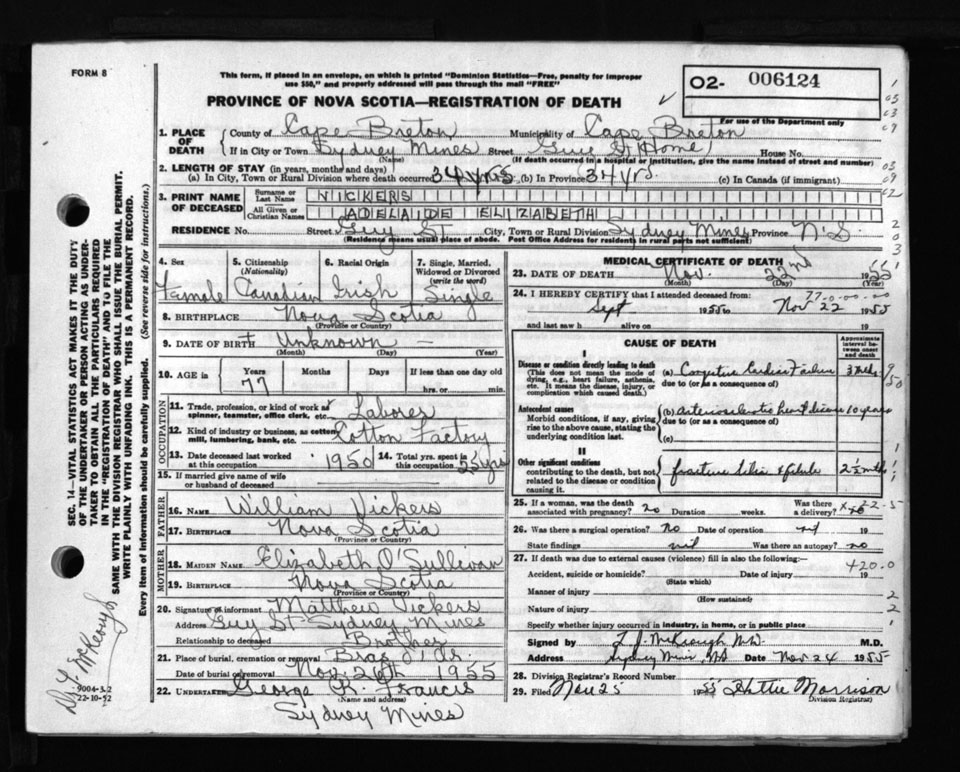 FORM 8
This form, if placed in an envelope, on which is printed "Dominion Statistics—Free, penalty for improper
use $50," and properly addressed will pass through the mail "FREE"
O2- 006124
For use of the Department only
PROVINCE OF NOVA SCOTIA—REGISTRATION OF DEATH
1. PLACE OF DEATH County of Cape Breton Municipality of Cape Breton
If in City or Town Sydney Mines Street Guy St Home House No.
(Name) (If death occurred in a hospital or institution, give the name instead of street and number)
2. LENGTH OF STAY (in years, months and days)
(a) In City, Town or Rural Division where death occurred 34 yrs (b) In Province 34 yrs. (c) In Canada (if immigrant)
3. PRINT NAME OF DECEASED Surname or Last Name NICKERS
All Given or Christian Names ADELAIDE ELIZABETH
RESIDENCE No. Street Guy St City, Town or Rural Division Sydney Mines Province N.S.
(Residence means usual place of abode. Post Office Address for residents in rural parts not sufficient)
4. Sex Female
5. Citizenship (Nationality) Canadian
6. Racial Origin Irish
7. Single, Married, Widowed or Divorced (write the word) Single
8. BIRTHPLACE Nova Scotia
(Province or Country)
9. DATE OF BIRTH Unknown
(Month) (Day) (Year)
10. AGE in Years 77 Months Days If less than one day old hrs. or min.
OCCUPATION
11. Trade, profession, or kind of work as spinner, teamster, office clerk, etc. Laborer
12. Kind of industry or business, as cotton mill, lumbering, bank, etc. Cotton Factory
13. Date deceased last worked at this occupation 1950
14. Total yrs. spent in this occupation 25 yrs
15. If married give name of wife or husband of deceased
FATHER
16. NAME William Vickers
17. BIRTHPLACE Nova Scotia
(Province or Country)
MOTHER
18. MAIDEN NAME Elizabeth O'Sullivan
19. BIRTHPLACE Nova Scotia
(Province or Country)
20. Signature of informant Matthew Vickers
Address Guy St Sydney Mines
Relationship to deceased Brother
21. Place of burial, cremation or removal Bras d'Or
Date of burial or removal Nov 26th 1955
22. UNDERTAKER George R. Francis
(Name and address)
Sydney Mines
MEDICAL CERTIFICATE OF DEATH
23. DATE OF DEATH Nov. 22nd 1955
(Month) (Day) (Year)
24. I HEREBY CERTIFY that I attended deceased from:
77-0-00-00
Sept 1955 to Nov 22 1955
and last saw h alive on 19
CAUSE OF DEATH
Approximate interval between onset and death
I
Disease or condition directly leading to death
(This does not mean the mode of dying, e.g., heart failure, asthenia, etc. It means the disease, injury, or complication which caused death.)
(a) Congestive Cardiac Failure 3 mths
due to (or as a consequence of)
Antecedent causes
Morbid conditions, if any, giving rise to the above cause, stating the underlying condition last.
(b) Arteriosclerotic heart disease 10 years
due to (or as a consequence of)
(c)
II
Other significant conditions
contributing to the death, but not related to the disease or condition causing it.
fracture tibia & fibula 2½ mths
25. If a woman, was the death associated with pregnancy? no Duration weeks. Was there a delivery? no
26. Was there a surgical operation? No Date of operation nil 19
State findings nil Was there an autopsy? no
27. If death was due to external causes (violence) fill in also the following:—
420.0
Accident, suicide or homicide? Date of injury 19
(State which)
Manner of injury
(How sustained)
Nature of injury
Specify whether injury occurred in industry, in home, or in public place
Signed by L.J. McKeough M.D. M.D.
Address Sydney Mines, NS Date Nov 24 1955
28. Division Registrar's Record Number
29. Filed Nov 25 1955 Hattie Morrison
Division Registrar
SEC. 14—VITAL STATISTICS ACT MAKES IT THE DUTY
OF THE UNDERTAKER OR PERSON ACTING AS UNDERTAKER
TO OBTAIN ALL THE PARTICULARS REQUIRED
IN THE "REGISTRATION OF DEATH" AND TO FILE THE
SAME WITH THE DIVISION REGISTRAR WHO SHALL ISSUE THE BURIAL PERMIT.
WRITE PLAINLY WITH UNFADING INK. THIS IS A PERMANENT RECORD.
Every item of information should be carefully supplied. (See reverse side for instructions.)
9004-3.2
22-10-52